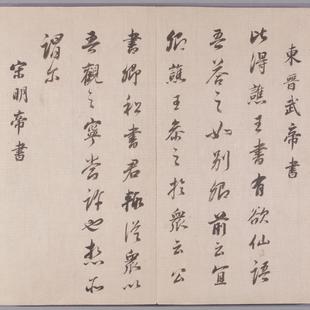 東晉武帝書
此得譙王書有欲仙語
吾答之如別卿前云宜
卿譙王參之於眾云公
書卿私書君輒従眾以
吾觀之寧當許也想不
謂尔
宋明帝書